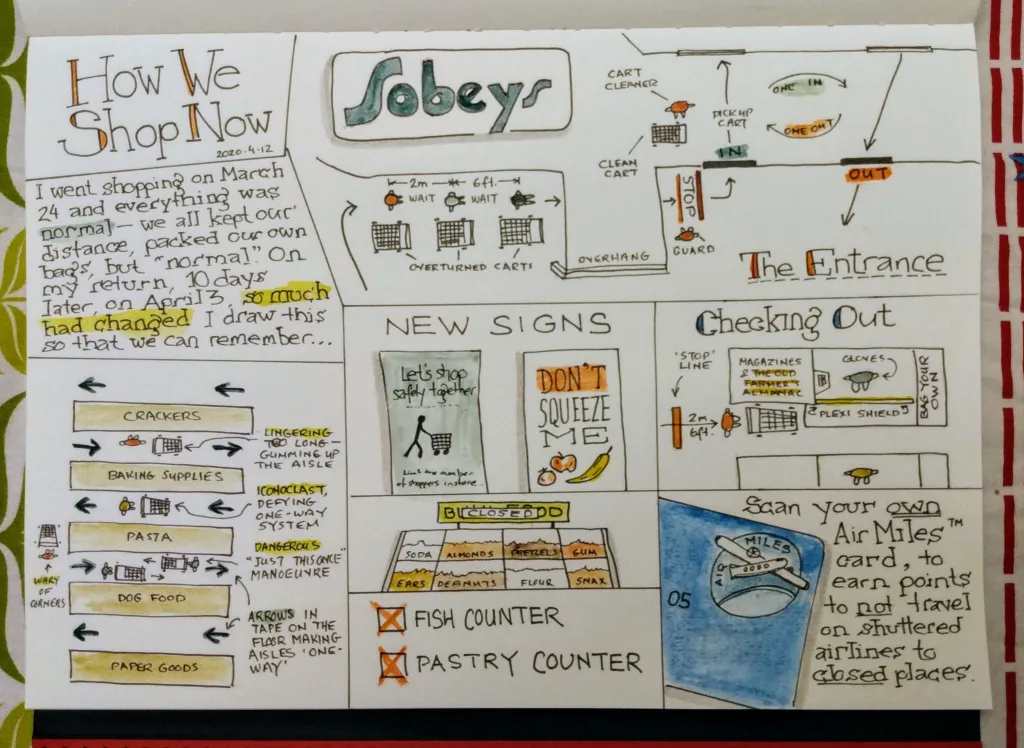 How We
Shop Now
2020.4.12
I went shopping on March
24 and everything was
normal — we all kept our
distance, packed our own
bags, but "normal." On
my return, 10 days
later, on April 3, so much
had changed. I draw this
so that we can remember...
Sobeys
CART
CLEANER
CLEAN
CART
PICK UP
CART
ONE IN
ONE OUT
IN
OUT
2m
6ft.
WAIT
WAIT
OVERTURNED CARTS
OVERHANG
STOP
GUARD
The Entrance
CRACKERS
BAKING SUPPLIES
PASTA
DOG FOOD
PAPER GOODS
LINGERING
TOO LONG —
GUMMING UP
THE AISLE
ICONOCLAST,
DEFYING
ONE-WAY
SYSTEM
DANGEROUS
"JUST THIS ONCE"
MANOEUVRE
WARY
OF
CORNERS
ARROWS IN
TAPE ON THE
FLOOR MAKING
AISLES 'ONE-
WAY'
NEW SIGNS
Let's shop
safely together
Limit the number
of shoppers in store.
DON'T
SQUEEZE
ME
CLOSED
SODA
ALMONDS
PRETZELS
GUM
EARS
PEANUTS
FLOUR
SNAX
FISH COUNTER
PASTRY COUNTER
Checking Out
'STOP'
LINE
2m
6ft.
MAGAZINES
& THE OLD
FARMER'S
ALMANAC
GLOVES
PLEXI SHIELD
BAG YOUR
OWN
05
AIR MILES
Scan your own
Air Miles™
card, to
earn points
to not travel
on shuttered
airlines to
closed places.